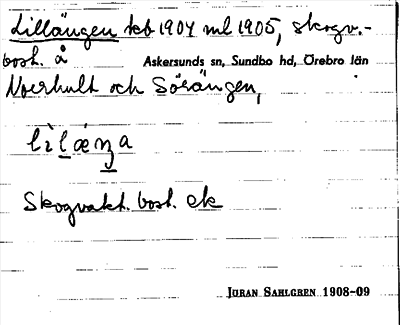 Lillängen kb 1904 ml 1905, skogv.-
bost. å Askersunds sn, Sundbo hd, Örebro län
Norrhult och Sörängen,
lìlæŋa
Skogvakt. bost. ek
JÖRAN SAHLGREN 1908-09